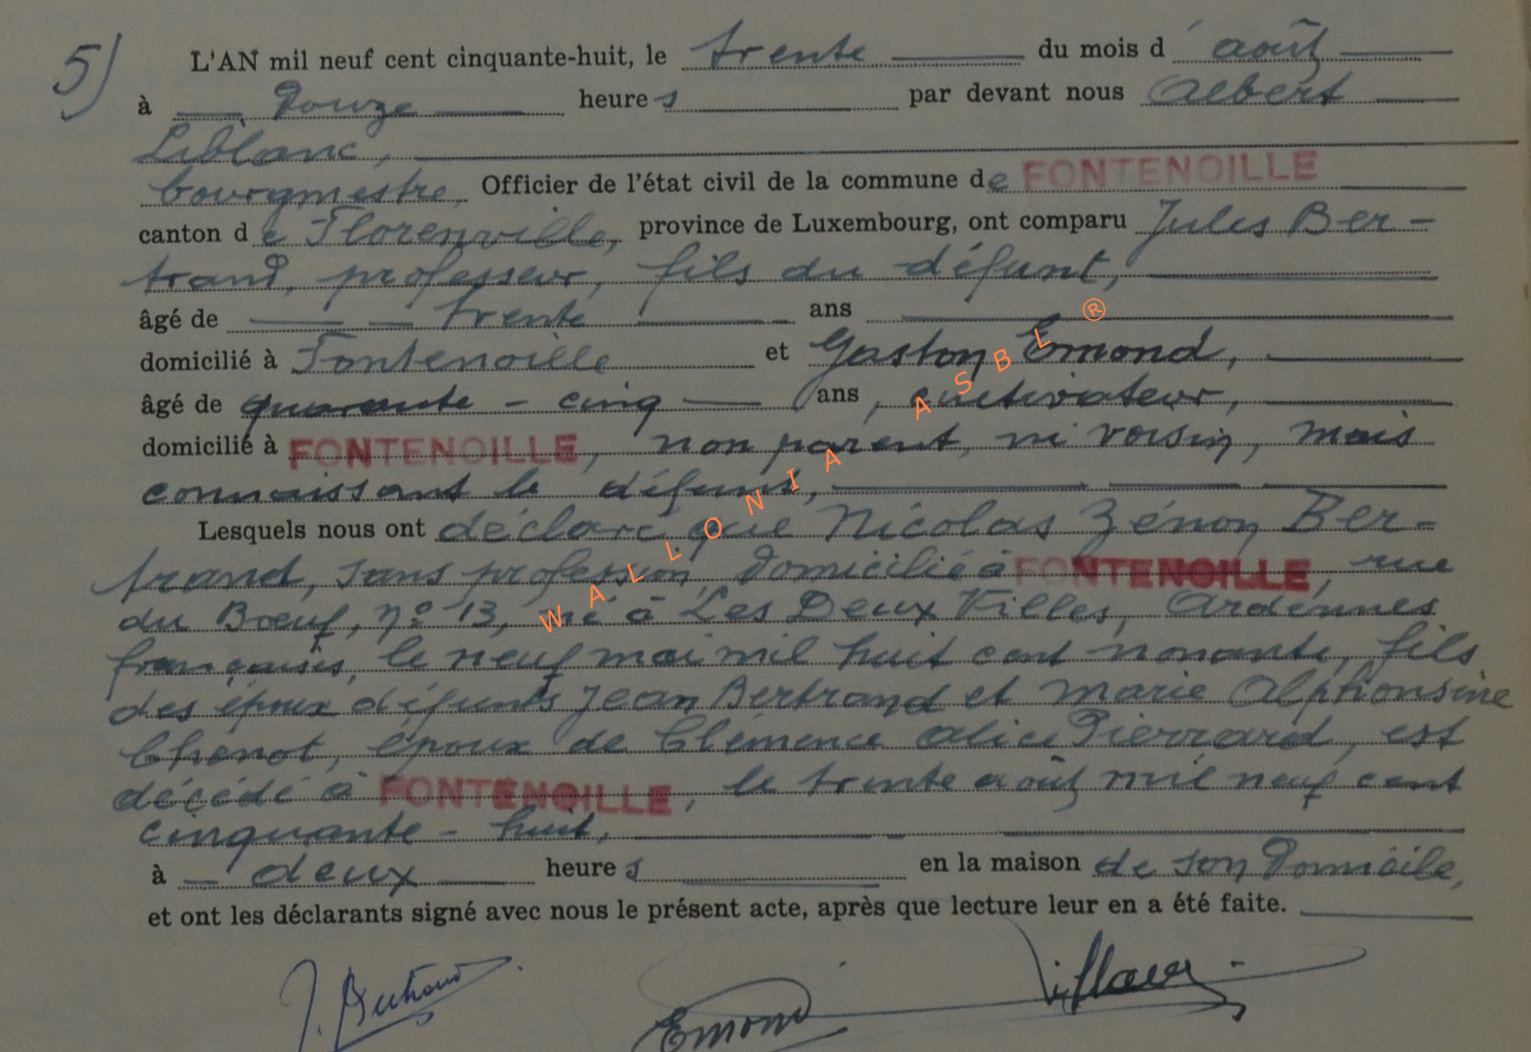 5)
L'AN mil neuf cent cinquante-huit, le trente du mois d' août
à douze heures par devant nous Albert
Liblanc,
bourgmestre, Officier de l'état civil de la commune de FONTENOILLE
canton de Florenville, province de Luxembourg, ont comparu Jules Ber-
trand, professeur, fils du défunt,
âgé de trente ans
domicilié à Fontenoille et Gaston Emond,
âgé de quarante-cinq ans, cultivateur,
domicilié à FONTENOILLE, non parent, ni voisin, mais
connaissant le défunt,
Lesquels nous ont déclaré que Nicolas Zénon Ber-
trand, sans profession, domicilié à FONTENOILLE, rue
du Bœuf, n° 13, né à Les Deux Villes, Ardennes
françaises, le neuf mai mil huit cent nonante, fils
des époux défunts Jean Bertrand et Marie Alphonsine
Chenot, époux de Clémence Alice Pierrard, est
décédé à FONTENOILLE, le trente août mil neuf cent
cinquante-huit,
à deux heures en la maison de son domicile,
et ont les déclarants signé avec nous le présent acte, après que lecture leur en a été faite.
J. Bertrand
Emond
WALLONIA ASBL ®